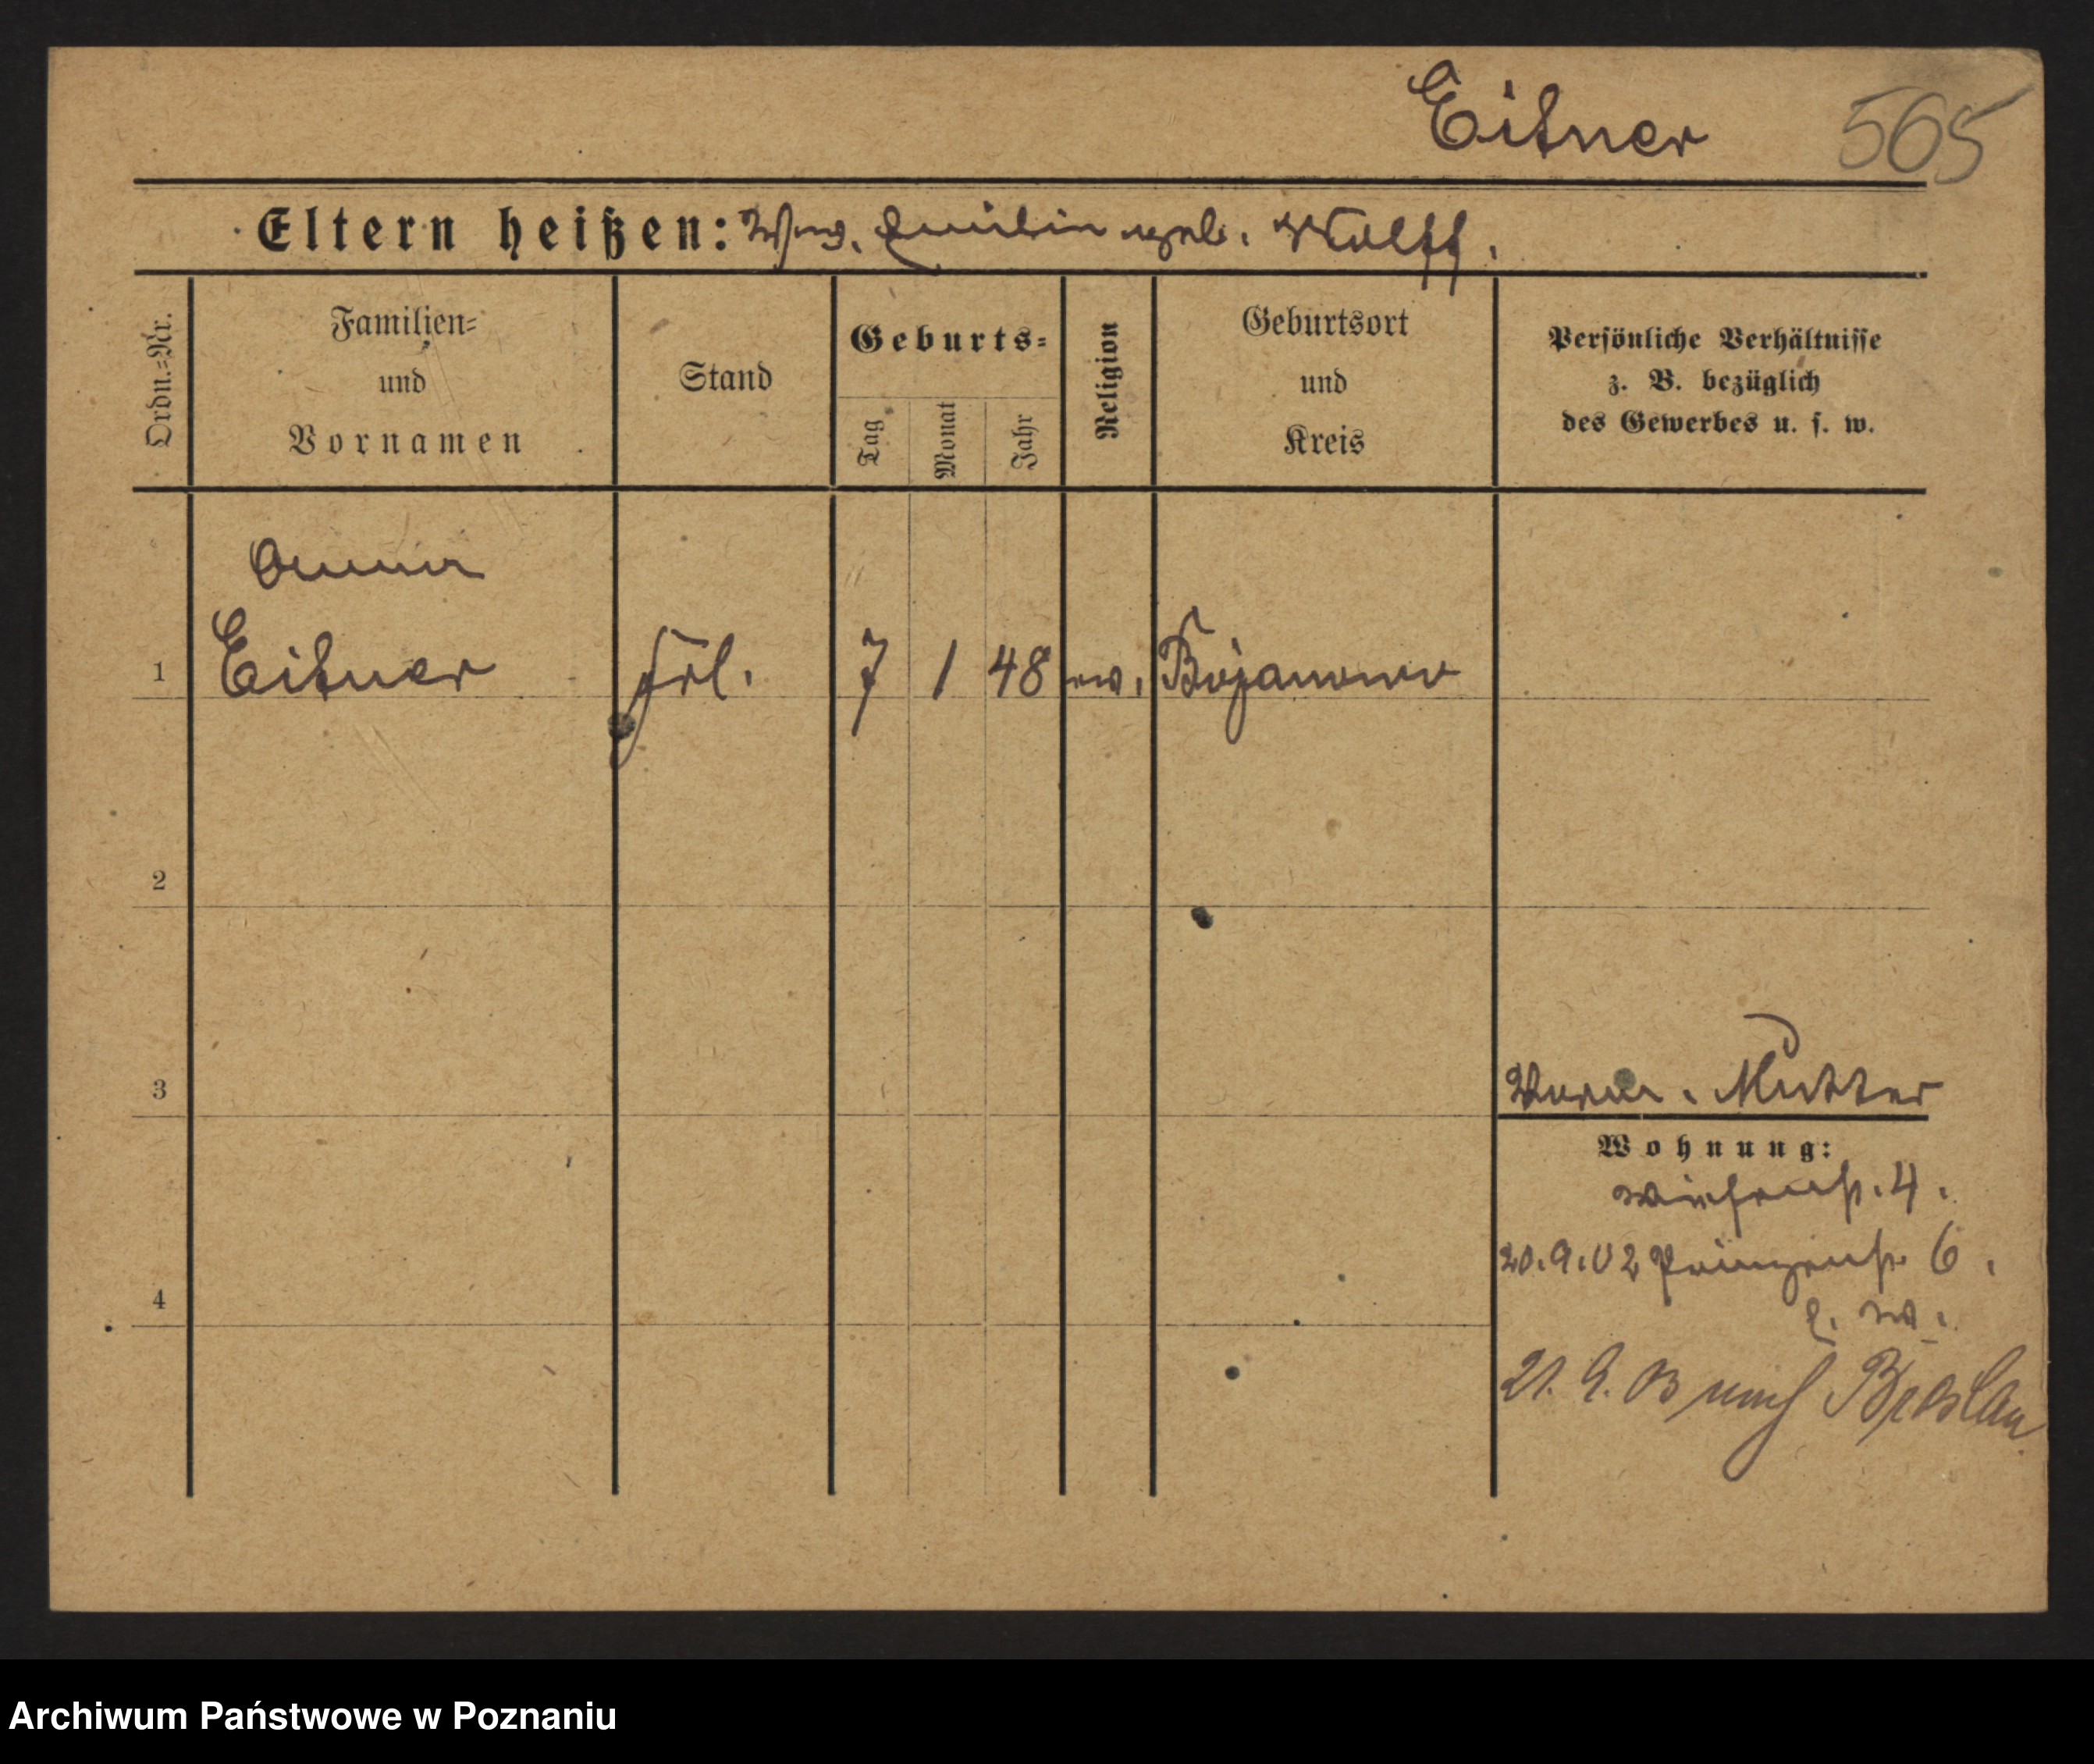 Eitner 565
Eltern heißen: Wwe. Emilie geb. Wolff.
Ordn.=Nr.
Familien=
und
Vornamen
Stand
Geburts=
Tag
Monat
Jahr
Religion
Geburtsort
und
Kreis
Persönliche Verhältnisse
z. B. bezüglich
des Gewerbes u. s. w.
Anna
1 Eitner Frl. 7 1 48 ev. Bojanowo
2
3
Mutter
Wohnung:
4.
20.9.02 Prinzenstr. 6.
4
21. 9. 03 nach Breslau
Archiwum Państwowe w Poznaniu